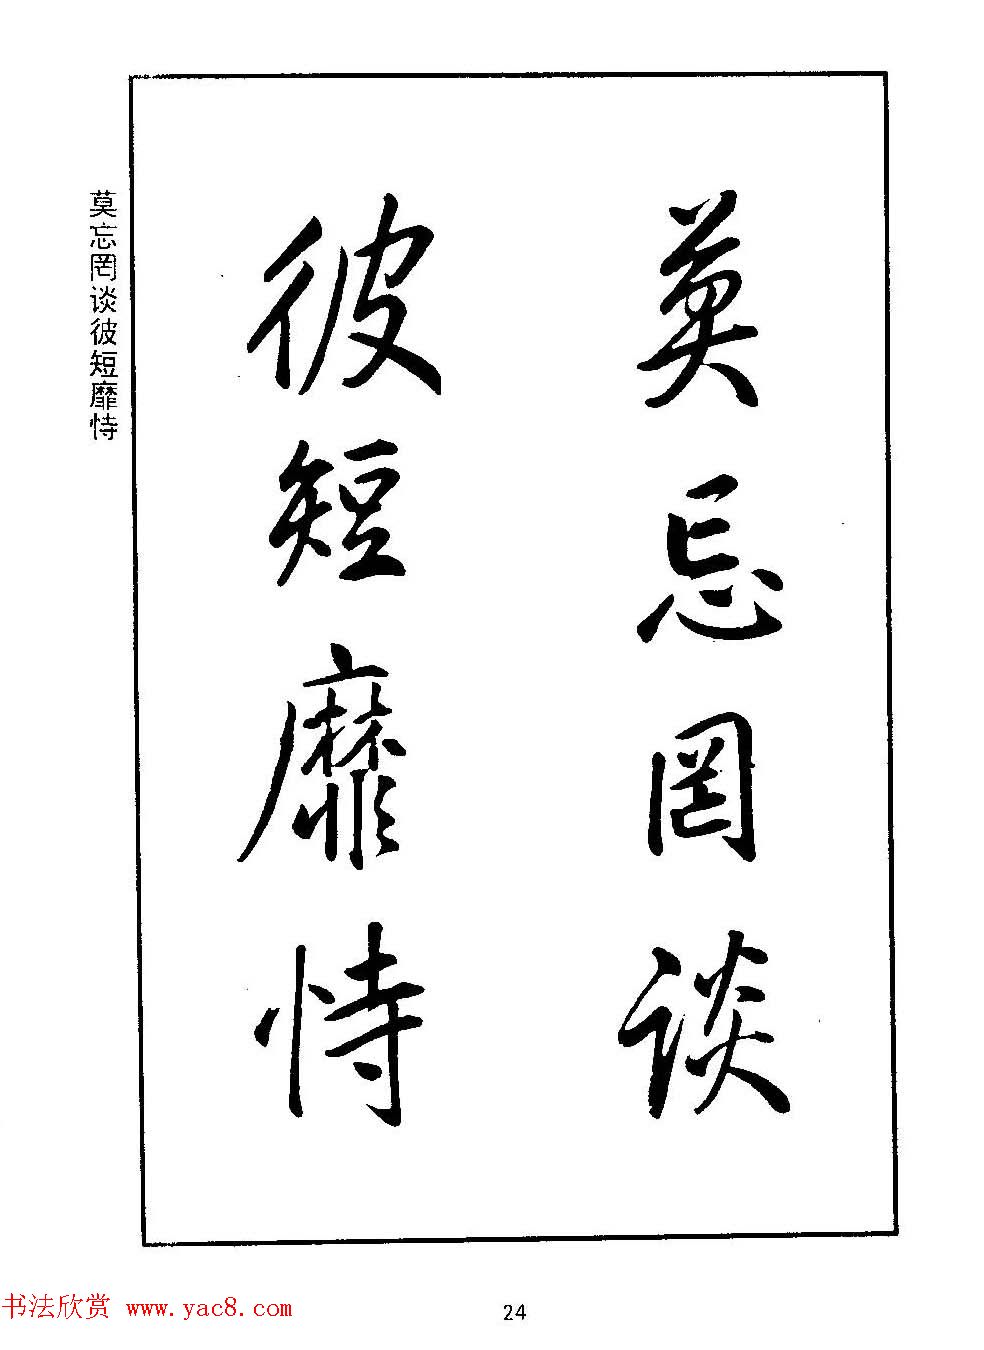 莫忘罔谈
彼短靡恃
莫忘罔谈彼短靡恃
书法欣赏 www.yac8.com
24